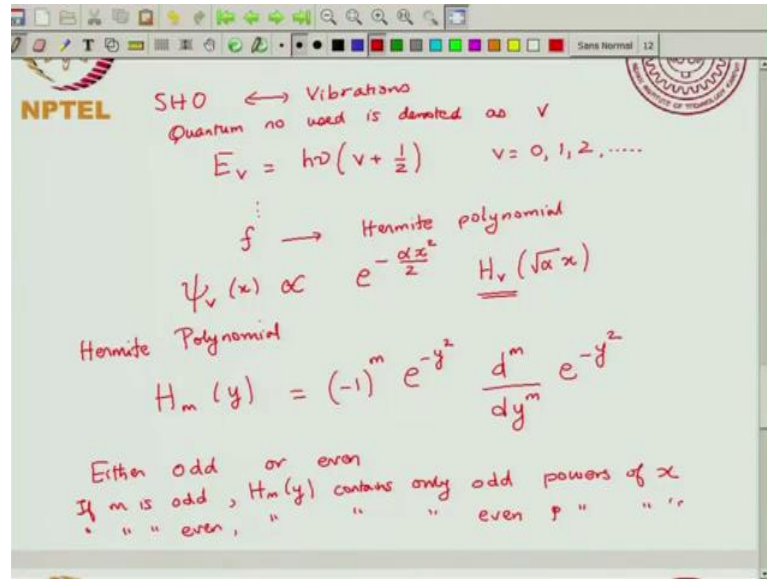 Sans Normal 12
NPTEL
SHO ⟷ Vibrations
Quantum no used is denoted as v
E_v = hν(v + 1/2) v = 0, 1, 2, .....
⋮
f ⟶ Hermite polynomial
ψ_v (x) ∝ e^{-αx²/2} H_v (√α x)
Hermite Polynomial
H_m (y) = (-1)^m e^{-y²} d^m/dy^m e^{-y²}
Either odd or even
If m is odd, H_m(y) contains only odd powers of x
" " " even, " " " even p " " "